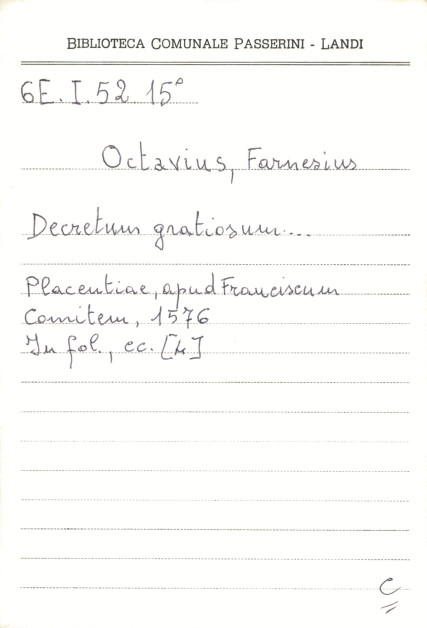 BIBLIOTECA COMUNALE PASSERINI - LANDI
6E. I. 52 15°
Octavius, Farnesius
Decretum gratiosum....
Placentiae, apud Franciscum
Comitem, 1576
In fol., cc. [4]
C